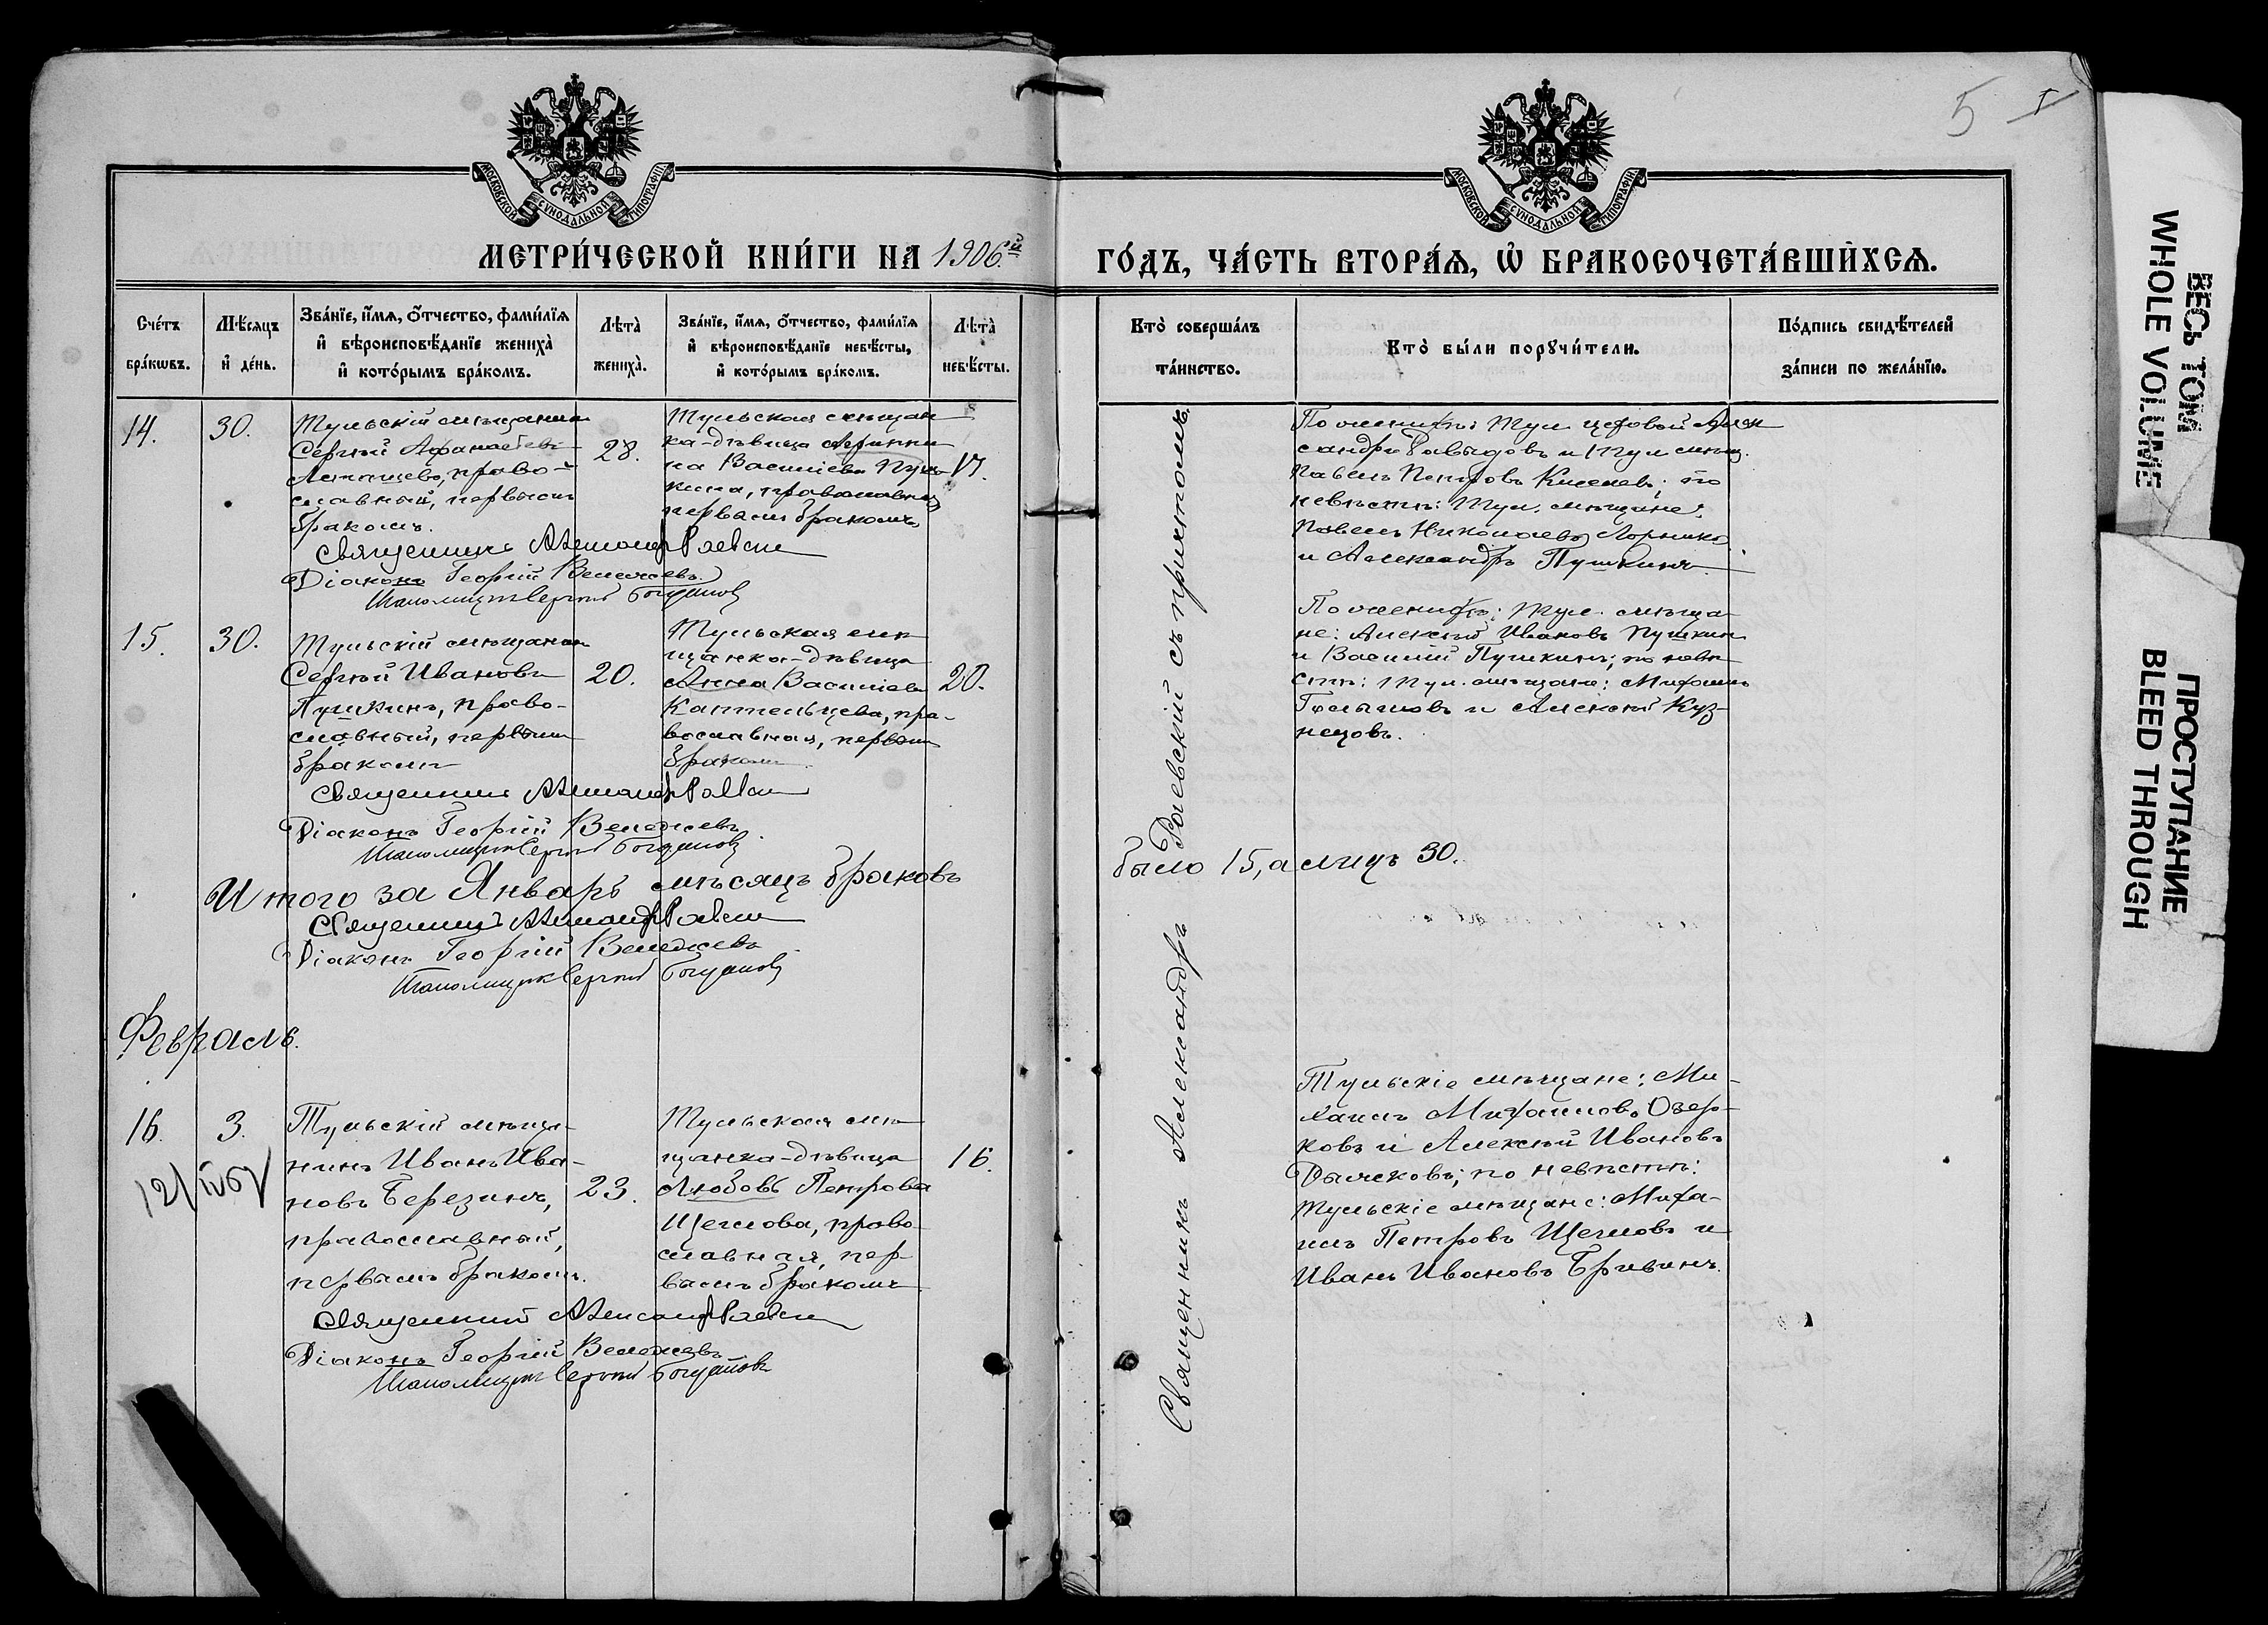 5
МОСКОВСКОЙ СѴНОДАЛЬНОЙ ТИПОГРАФІИ
МОСКОВСКОЙ СѴНОДАЛЬНОЙ ТИПОГРАФІИ
МЕТРИ́ЧЕСКОЙ КНИ́ГИ НА 1906й
ГО́ДЪ, ЧА́СТЬ ВТОРА́Я, Ѡ҆ БРАКОСОЧЕТА́ВШИХСЯ.
Сче́тъ бра́кѡвъ.
Мѣ́сяцъ и҆ де́нь.
Зва́нїе, и҆́мя, ѻ҆́тчество, фами́лїя
и҆ вѣроисповѣ́данїе жениха̀
и҆ кото́рымъ бра́комъ.
Лѣта̀ жениха̀.
Зва́нїе, и҆́мя, ѻ҆́тчество, фами́лїя
и҆ вѣроисповѣ́данїе невѣ́сты,
и҆ кото́рымъ бра́комъ.
Лѣта̀ невѣ́сты.
Кто̀ соверша́лъ та́инство.
Кто̀ бы́ли порꙋчи́тели.
По́дпись свидѣ́телей за́писи по жела́нїю.
14.
30.
Тульскій мѣщанинъ
Сергѣй Афанасьевъ
право-
славный, первымъ
бракомъ.
28.
Тульская мѣщан
ка-дѣвица
на Васильева
православная
первымъ бракомъ
17.
По женихѣ: Тул цеховой Алек
сандръ Давыдовъ и Тул мѣщ.
Павелъ Петровъ Киселевъ; по
невѣстѣ: Тул. мѣщане:
Павелъ Николаевъ
и Александръ Пушкинъ.
Священникъ Александръ Раевскій
Діаконъ Георгій
Псаломщикъ Сергій Богдановъ
15.
30.
Тульскій мѣщанинъ
Сергѣй Ивановъ
Пушкинъ, право-
славный, первымъ
бракомъ
20.
Тульская мѣ
щанка-дѣвица
Анна Васильева
Каптельцева, пра-
вославная, первымъ
бракомъ.
20.
По женихѣ: Тул. мѣща
не: Алексѣй Ивановъ Пушкин
и Василій Пушкинъ; по невѣ
стѣ: Тул. мѣщане: Михаилъ
и Алексѣй Куз-
нецовъ.
Священникъ Александръ Раевскій
Діаконъ Георгій
Псаломщикъ Сергій Богдановъ
Итого за Январь мѣсяцъ браковъ
было 15, а лицъ 30.
Священникъ Александръ Раевскій
Діаконъ Георгій
Псаломщикъ Сергій Богдановъ
Февраль.
16.
3.
Тульскій мѣща-
нинъ Иванъ Ива-
новъ Березинъ,
православный,
первымъ бракомъ.
23.
Тульская мѣ
щанка-дѣвица
Любовь Петрова
Щеглова, право-
славная, пер-
вымъ бракомъ.
16.
Тульскіе мѣщане: Ми-
хаилъ Михаиловъ Озер-
ковъ и Алексѣй Ивановъ
по невѣстѣ:
Тульскіе мѣщане: Миха-
илъ Петровъ Щегловъ и
Иванъ Ивановъ
Священникъ Александръ Раевскій
Діаконъ Георгій
Псаломщикъ Сергій Богдановъ
Священникъ Александръ Раевскій съ причтомъ.
ВЕСЬ ТОМ
WHOLE VOLUME
ПРОСТУПАНИЕ
BLEED THROUGH